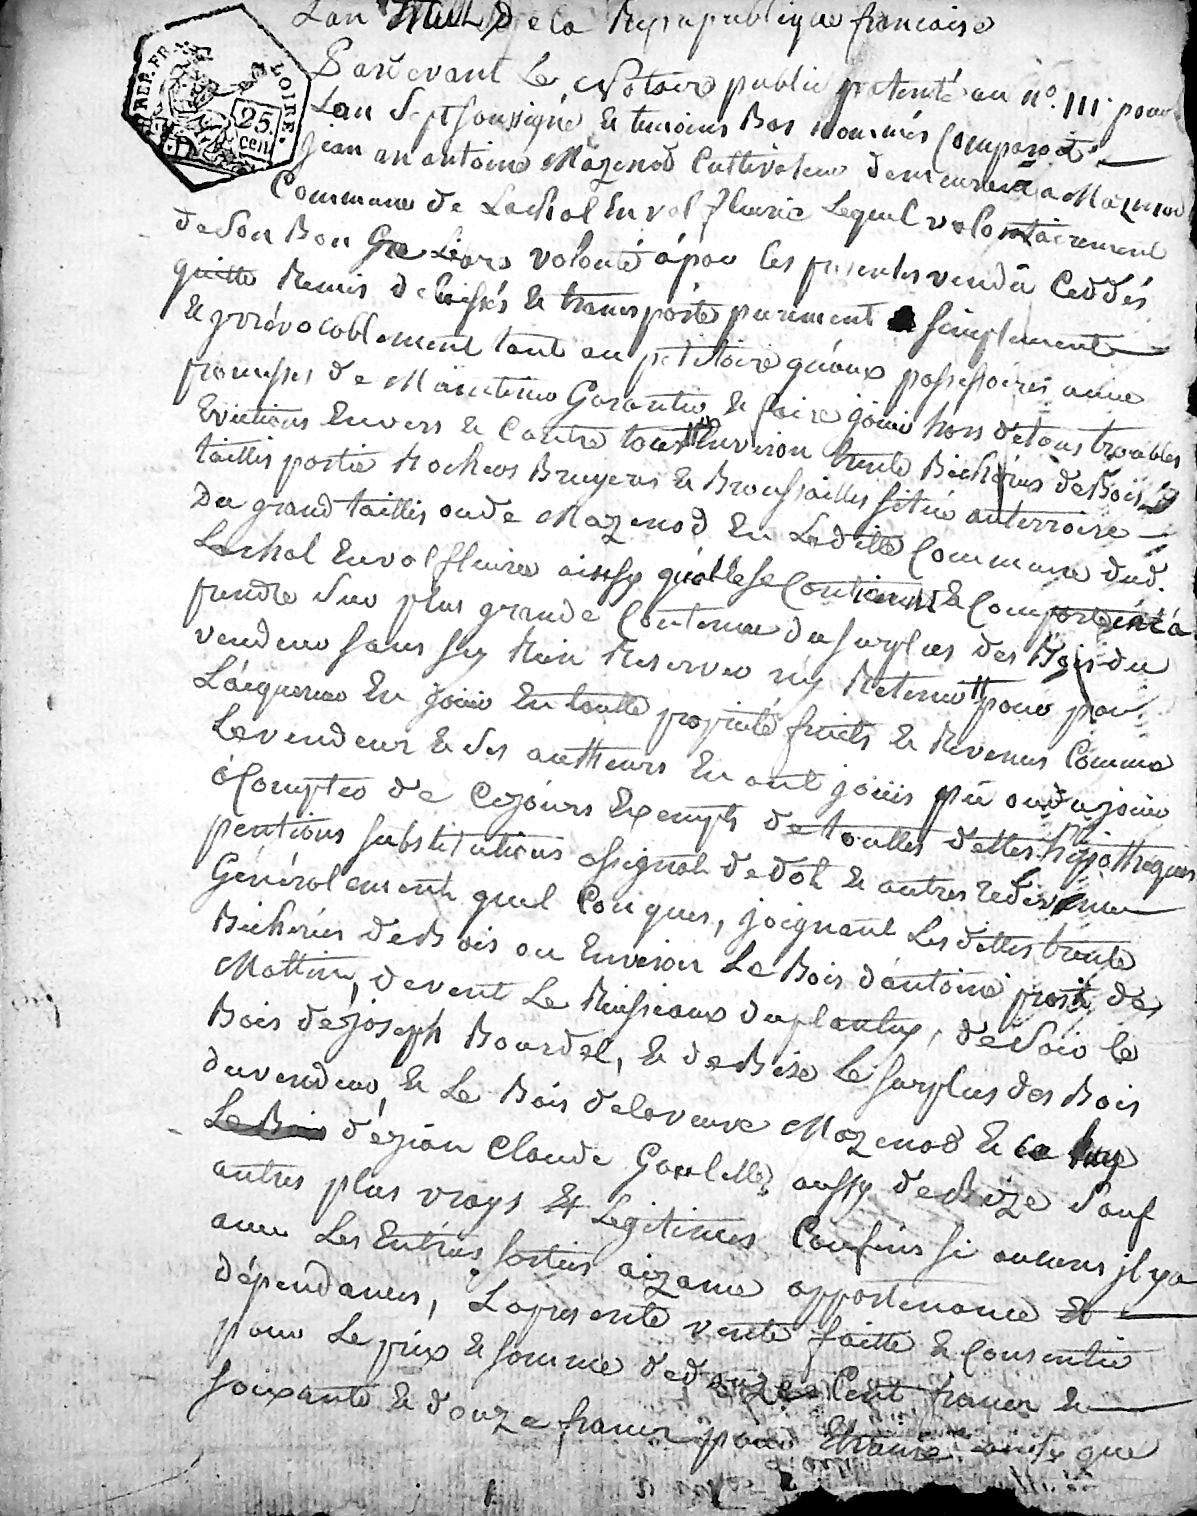 Lan de la Reprepublique francaise
REP. FR. LOIRE. 25 cen
Pardevant Le Notaire public patenté au n.° 111 pour
Lan Sept soussigné & temoins Bas nommés Comparoit
jean antoine Mazenod Cultivateur demeurent a Mazenod
Commune de Lachal En val fleurie Lequel volontairement
de Son Bon Gre Libre volonté á par les presentes vendu Ceddés
quitte Remis delaissés & transporté purement & simplement
& yrrévocablement tant au petitoire quaux possessoires avec
promesses de Maintenir Garantir & faire jouir hors de tous troubles
Evictions Envers & Contre tous Environ trente Bicherées de Bois
taillis partie Rochers Bruyeres & Broussailles Située au terroire
Du grand taillis ou de Mazenod En Laditte Commune dud.
Lachal En val fleurie aissy quelle se Contienent & Comportent á
prendre Sur plus grande Contenue du surplus des Bois du
vendeur sans sy Rien Reserver ny Retenir pour par
Láquereur En Jouir En toutte propriété fruits & Revenus Comme
Le vendeur & Ses autheurs En ont jouis pû ou du jouir
á Compter de Cejours Exempts de touttes dettes hypotheques
pentions substitutions assignat de dot & autres redevence
Généralement quel Conques, joignant Les dittes trente
Bicherées de Bois ou Environ Le Bois dántoine de
Mattin, de vent Le Ruissiaux du plantay, de Soir le
Bois de joseph Bourdel, & de Bize Le surplus des Bois
du vendeur & Le Bois de la veuve Mazenod &
Le Bois dé jean Claude Goulette aussy de Bize Sauf
autres plus vrays & Legitimes Confins si aucuns jl ya
avec Les Entrées sorties aizance appartenance &
dépendances, La presente vente faitte & Consentie
pour Le prix & somme de douze Cent francs &
soixante & douze francs pour Etraine ainsy que